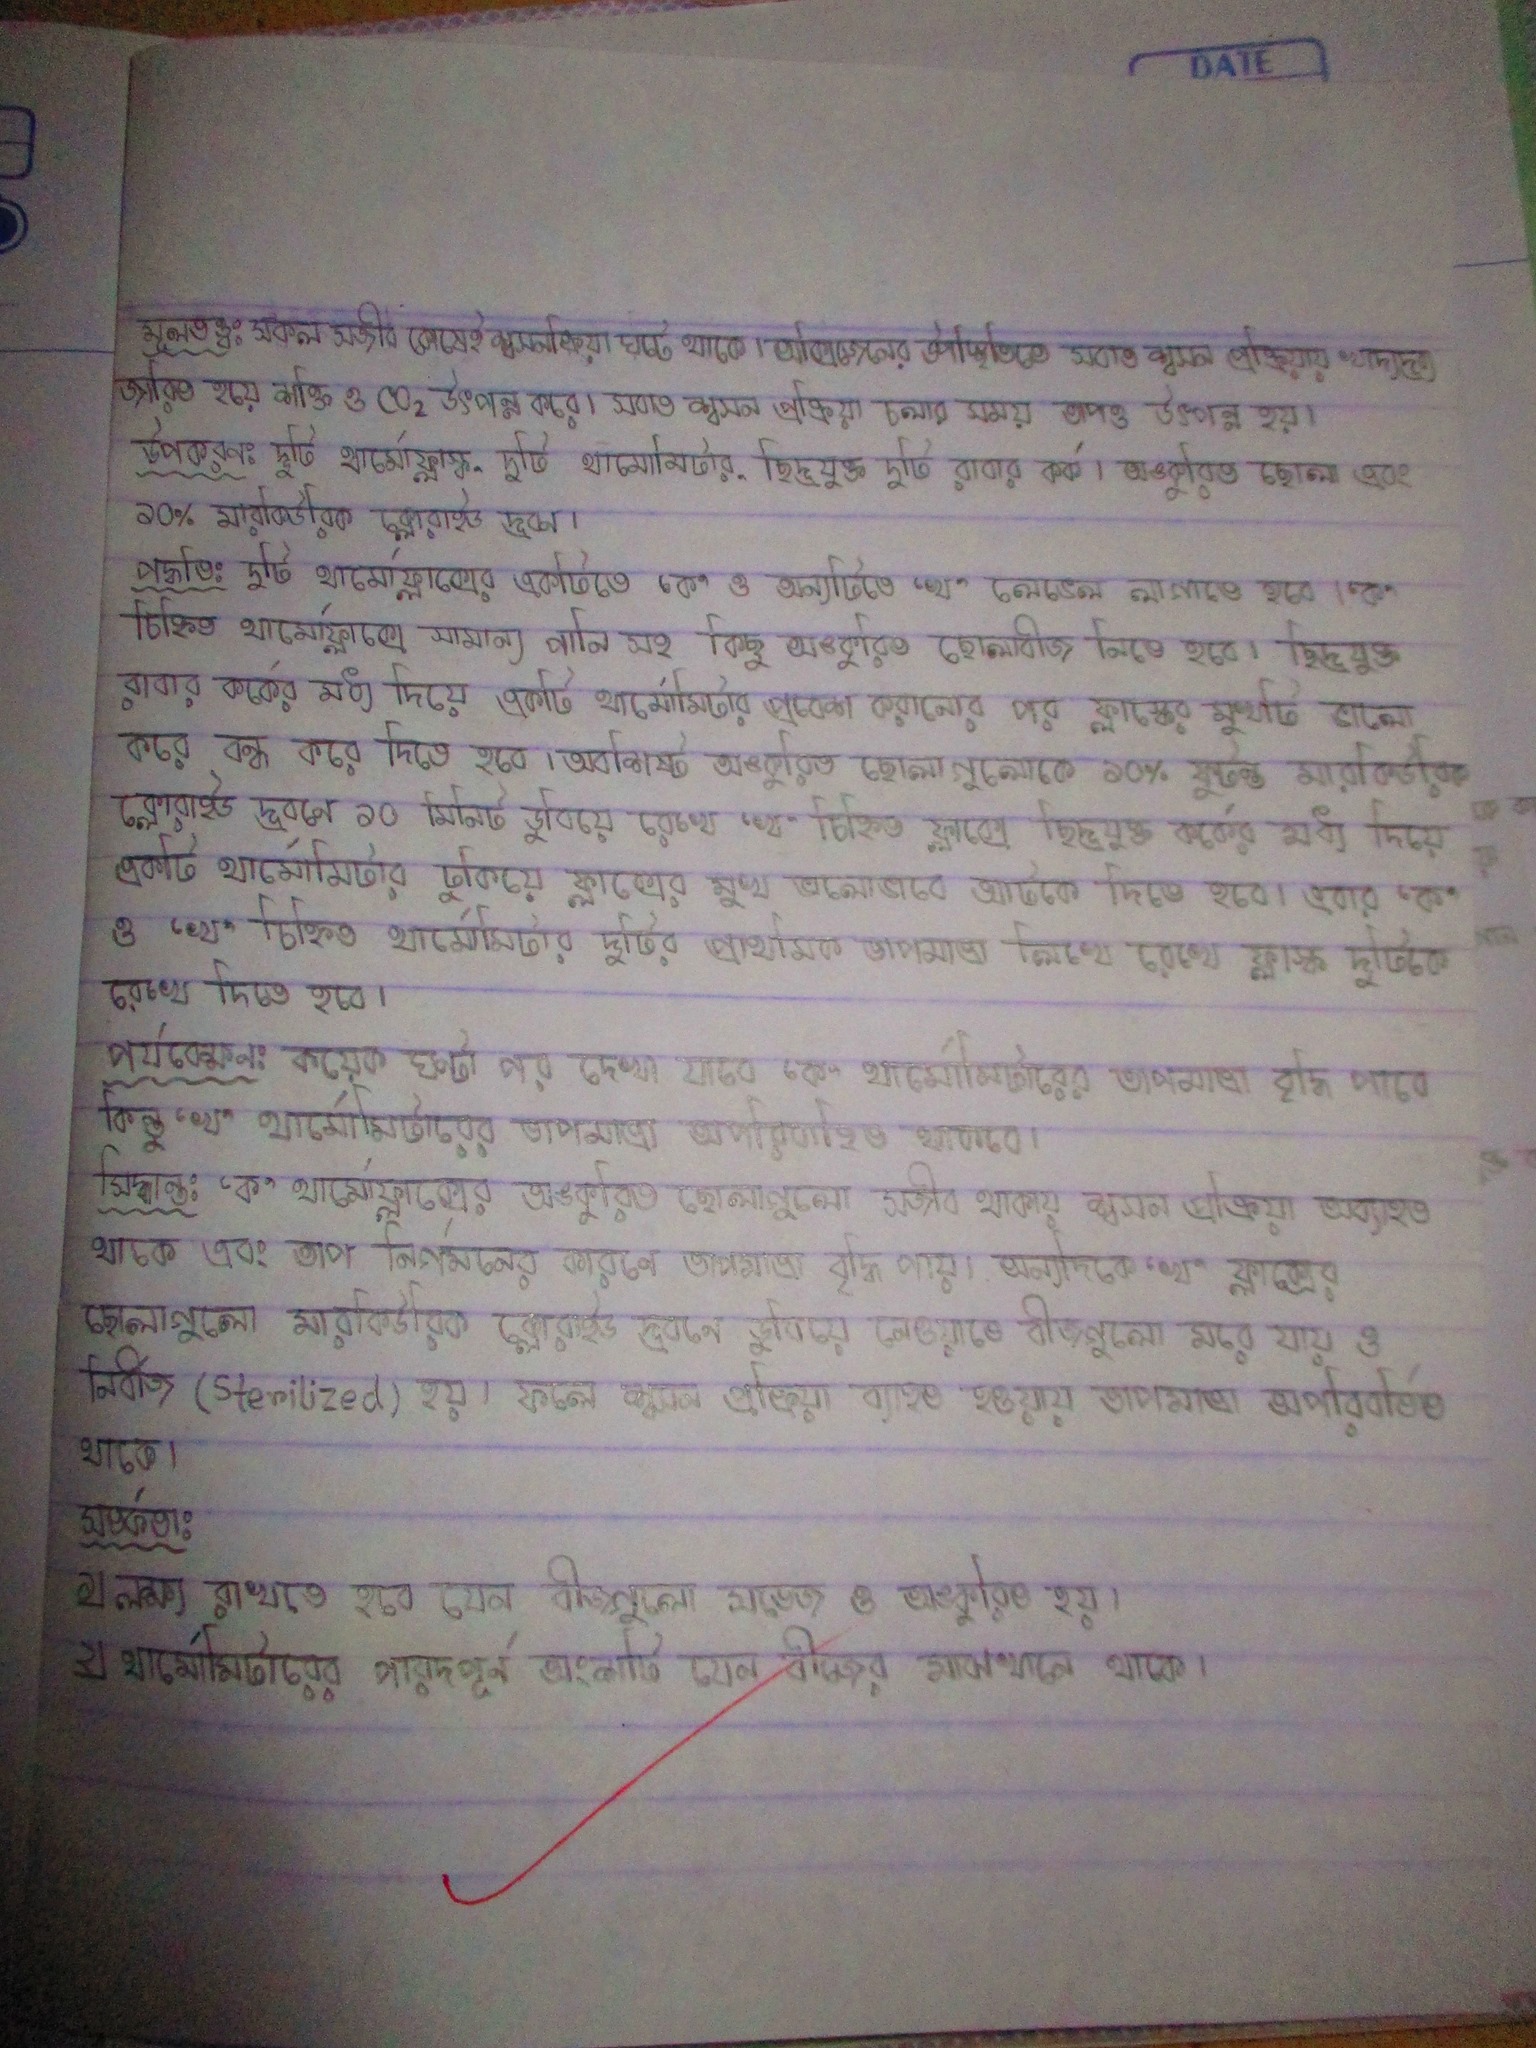 DATE
মূলতত্ত্ব: সকল সজীব কোষেই শ্বসনক্রিয়া ঘটে থাকে। অক্সিজেনের উপস্থিতিতে সবাত শ্বসন প্রক্রিয়ায় খাদ্যদ্রব্য
জারিত হয়ে শক্তি ও CO₂ উৎপন্ন করে। সবাত শ্বসন প্রক্রিয়া চলার সময় তাপও উৎপন্ন হয়।
উপকরণ: দুটি থার্মোফ্লাস্ক, দুটি থার্মোমিটার, ছিদ্রযুক্ত দুটি রাবার কর্ক। অঙ্কুরিত ছোলা এবং
১০% মারকিউরিক ক্লোরাইড দ্রবণ।
পদ্ধতি: দুটি থার্মোফ্লাক্সের একটিতে "ক" ও অন্যটিতে "খ" লেভেল লাগাতে হবে। "ক"
চিহ্নিত থার্মোফ্লাক্সে সামান্য পানি সহ কিছু অঙ্কুরিত ছোলাবীজ নিতে হবে। ছিদ্রযুক্ত
রাবার কর্কের মধ্য দিয়ে একটি থার্মোমিটার প্রবেশ করানোর পর ফ্লাস্কের মুখটি ভালো
করে বন্ধ করে দিতে হবে। অবশিষ্ট অঙ্কুরিত ছোলাগুলোকে ১০% ফুটন্ত মারকিউরিক
ক্লোরাইড দ্রবনে ১০ মিনিট ডুবিয়ে রেখে "খ" চিহ্নিত ফ্লাক্সে ছিদ্রযুক্ত কর্কের মধ্য দিয়ে
একটি থার্মোমিটার ঢুকিয়ে ফ্লাক্সের মুখ ভালোভাবে আটকে দিতে হবে। এবার "ক"
ও "খ" চিহ্নিত থার্মোমিটার দুটির প্রাথমিক তাপমাত্রা লিখে রেখে ফ্লাস্ক দুটিকে
রেখে দিতে হবে।
পর্যবেক্ষন: কয়েক ঘন্টা পর দেখা যাবে "ক" থার্মোমিটারের তাপমাত্রা বৃদ্ধি পাবে
কিন্তু "খ" থার্মোমিটারের তাপমাত্রা অপরিবর্তিত থাকবে।
সিদ্ধান্ত: "ক" থার্মোফ্লাক্সের অঙ্কুরিত ছোলাগুলো সজীব থাকায় শ্বসন প্রক্রিয়া অব্যাহত
থাকে এবং তাপ নির্গমনের কারণে তাপমাত্রা বৃদ্ধি পায়। অন্যদিকে "খ" ফ্লাক্সের
ছোলাগুলো মারকিউরিক ক্লোরাইড দ্রবনে ডুবিয়ে নেওয়াতে বীজগুলো মরে যায় ও
নির্বীজ (Sterilized) হয়। ফলে শ্বসন প্রক্রিয়া ব্যাহত হওয়ায় তাপমাত্রা অপরিবর্তিত
থাকে।
সতর্কতা:
১। লক্ষ্য রাখতে হবে যেন বীজগুলো সতেজ ও অঙ্কুরিত হয়।
২। থার্মোমিটারের পারদপূর্ন অংশটি যেন বীজের মাঝখানে থাকে।